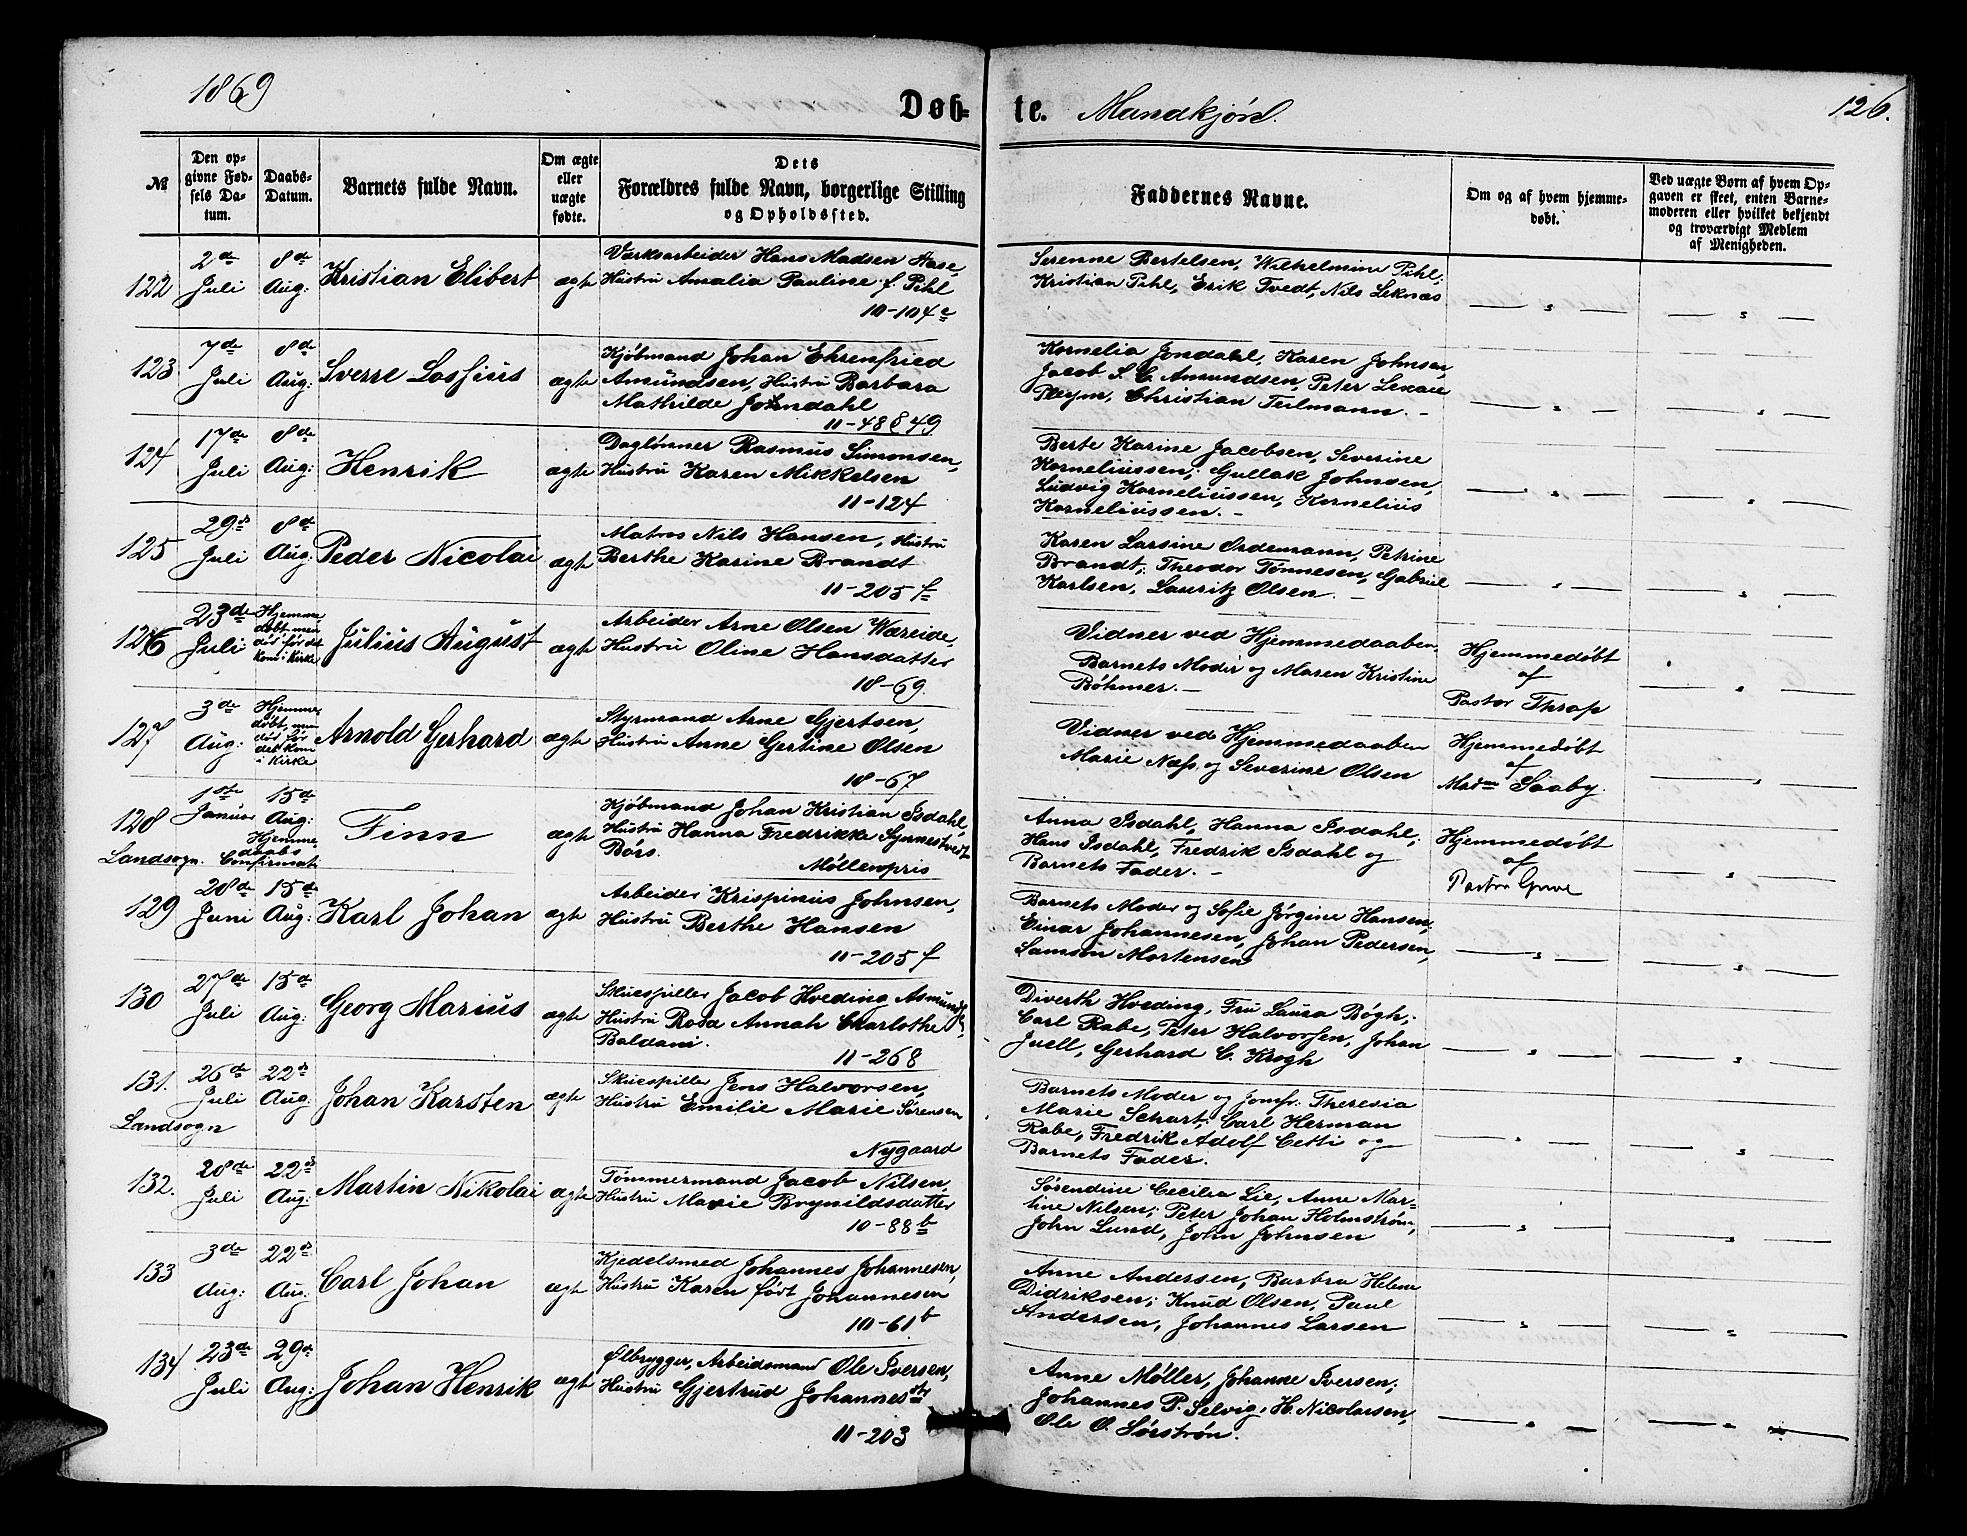 1869
Døb-
te. Mandkjøn.
126.
№
Den op-
givne Fød-
sels Da-
tum.
Daabs-
Datum.
Barnets fulde Navn.
Om ægte
eller
uægte
fødte.
Dets
Forældres fulde Navn, borgerlige Stilling
og Opholdssted.
Faddernes Navne.
Om og af hvem hjemme-
døbt.
Ved uægte Børn af hvem Op-
gaven er skeet, enten Barne-
moderen eller hvilket bekjendt
og troværdigt Medlem
af Menigheden.
122
2de
Juli
8de
Aug:
Kristian Elibert
ægte
Værksarbeider Hans Madsen Aase,
Hustru Amalia Pauline f. Pihl
10-104c
Serenne Bertelsen, Wilhelmine Pihl;
Kristian Pihl, Erik Tvedt, Nils Leknæs
123
7de
Juli
8de
Aug:
Sverre Lossius
ægte
Kjøbmand Johan Ehrenfried
Amundsen, Hustru Barbara
Mathilde Johndahl
11-48 & 49
Kornelia Jondahl, Karen Johnsen,
Jacob S. C. Amundsen, Peter Lexaie
Pleym, Christian Teilmann.
124
17de
Juli
8de
Aug:
Henrik
ægte
Daglønner Rasmus Simonsen,
Hustru Karen Mikkelsen
11-124
Berte Karine Jacobsen, Severine
Korneliussen; Gullak Johnsen,
Ludvig Korneliussen, Kornelius
Korneliussen.
125
29de
Juli
8de
Aug:
Peder Nicolai
ægte
Matros Nils Hansen, Hustru
Berthe Karine Brandt
11-205 f
Karen Larsine Ordemann, Petrine
Brandt; Theodor Tønnesen, Gabriel
Karlsen, Lauritz Olsen.
126
23de
Juli
Hjemme
døbt, men
død før det
kom i Kirke
Julius August
ægte
Arbeider Arne Olsen Wæreide,
Hustru Oline Hansdatter
18-69.
Vidner ved Hjemmedaaben
Barnets Moder og Maren Kristine
Bøhmer.
Hjemmedøbt
af
Pastor Thrap
127
3de
Aug:
Hjemme,
døbt, men
død før
det kom
i Kirke
Arnold Gerhard
ægte
Styrmand Arne Gjertsen,
Hustru Anne Gertine Olsen
18-67
Vidner ved Hjemmedaaben
Marie Næss og Severine Olsen
Hjemmedøbt
af
Madm Saaby.
128
Landsogn.
1ste
Januar
15de
Aug:
Hjemme,
daabs
Confirmati
Finn
ægte
Kjøbmand Johan Kristian Isdahl,
Hustru Hanna Fredrikke Synnestvedt
Børs.
Møllenpris
Anna Isdahl, Hanna Isdahl;
Hans Isdahl, Fredrik Isdahl og
Barnets Fader.
Hjemmedøbt
af
Pastor Greve
129
28de
Juni
15de
Aug:
Karl Johan
ægte
Arbeider Krispinus Johnsen,
Hustru Berthe Hansen
11-205 f
Barnets Moder og Sofie Jørgine Hansen,
Einar Johannesen, Johan Pedersen,
Samson Mortensen
130
27de
Juli
15de
Aug:
Georg Marius
ægte
Skuespiller Jacob Hveding Asmunds,
Hustru Rosa Annah Charlothe
Baldani.
11-268
Diverth Hveding, Fru Laura Bøgh;
Carl Rabe, Peter Halvorsen, Johan
Juell, Gerhard C. Krogh
131.
Landsogn
26de
Juli
22de
Aug:
Johan Karsten
ægte
Skuespiller Jens Halvorsen,
Hustru Emilie Marie Sørensen
Nygaard
Barnets Moder og Jomfr. Theresia
Marie Schart; Carl Herman
Rabe, Fredrik Adolf Cetti og
Barnets Fader.
132.
28de
Juli
22de
Aug:
Martin Nikolai
ægte
Tømmermand Jacob Nilsen,
Hustru Marie Brynildsdatter
10-88b
Sørendine Cecilia Lie, Anne Mar-
tine Nilsen; Peter Johan Holmstrøm,
John Lund, John Johnsen
133
3de
Aug:
22de
Aug:
Carl Johan
ægte
Kjedelsmed Johannes Johannesen,
Hustru Karen født Johannesen
10-61b
Anne Andersen, Barbra Helene
Didriksen; Knud Olsen, Paul
Andersen, Johannes Larsen
134
23de
Juli
29de
Aug:
Johan Henrik
ægte
Ølbrygger, Arbeidsmand Ole Iversen,
Hustru Gjertrud Johannesdtr
11-203
Anne Møller, Johanne Iversen;
Johannes P. Selvig, H. Nicolaisen,
Ole O. Sørstrøn.